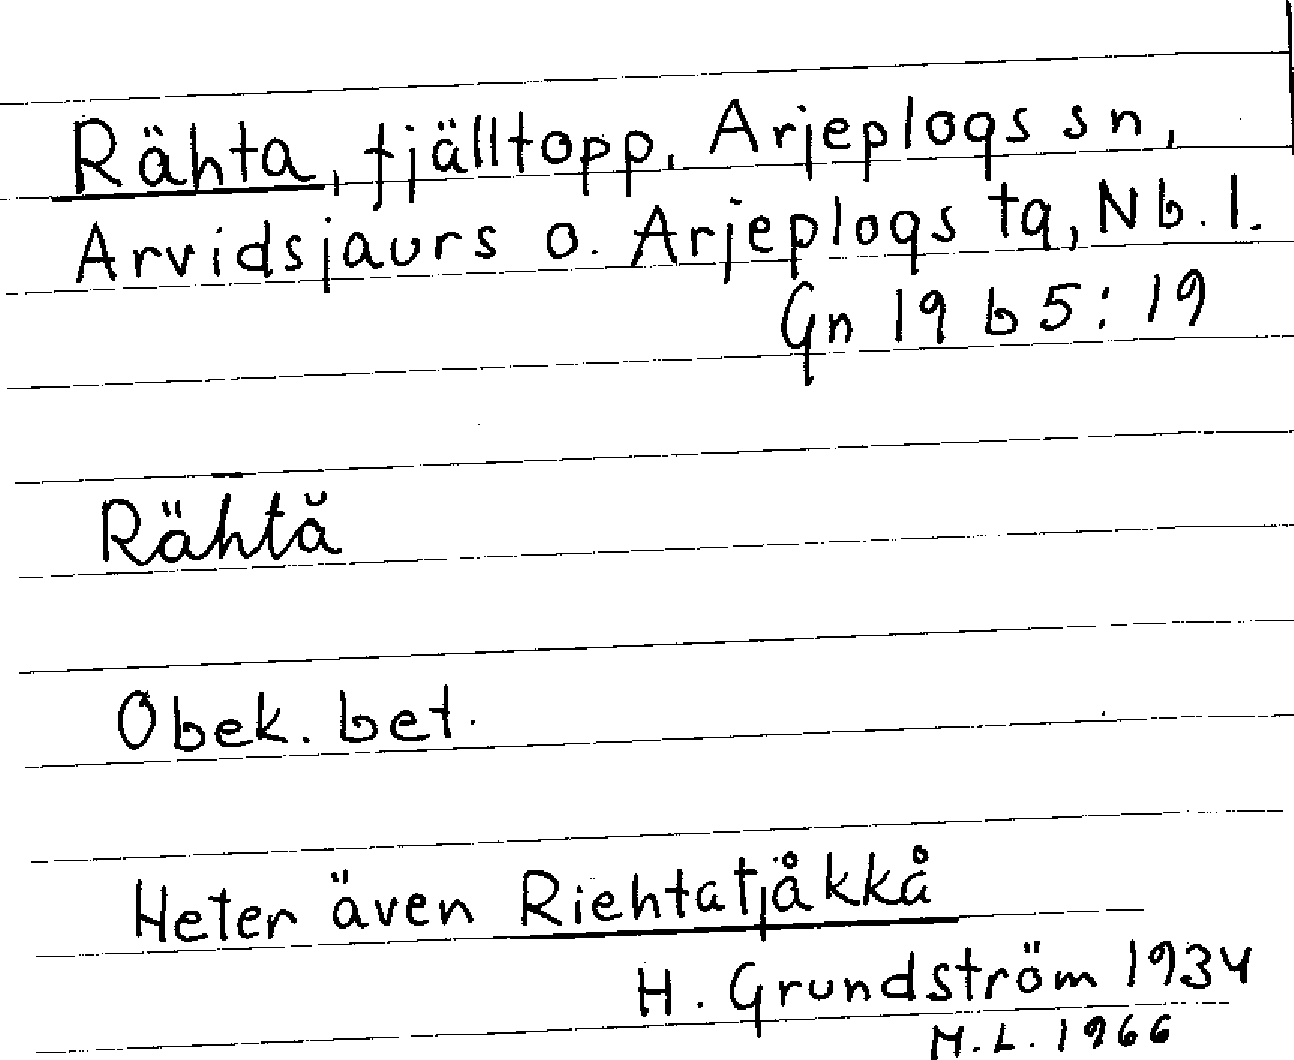 Rähta, fjälltopp, Arjeplogs sn,
Arvidsjaurs o. Arjeplogs tg, Nb. l.
Gn 19 b 5:19
Rähtă
Obek. bet.
Heter även Riehtatjåkkå
H. Grundström 1934
M.L. 1966